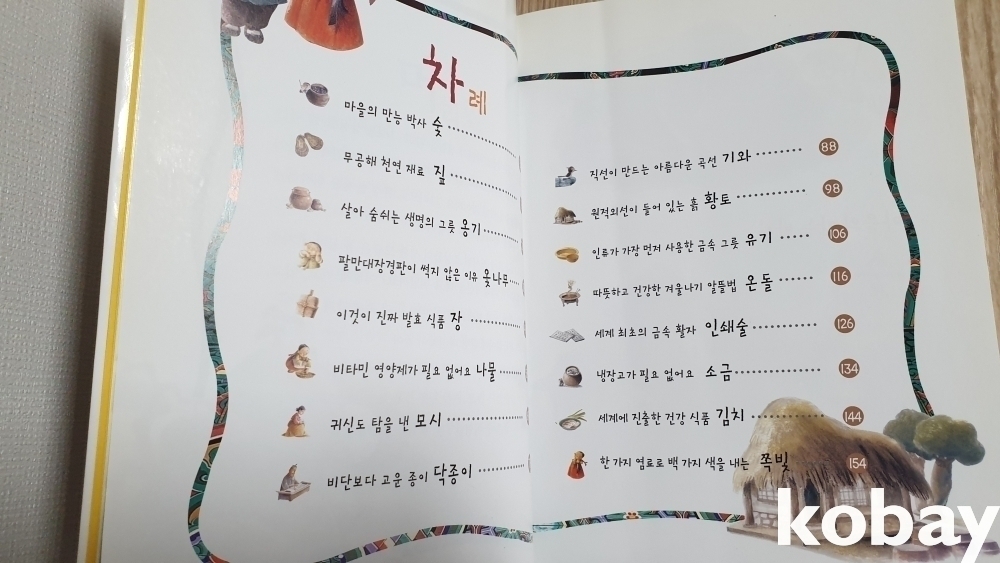 차례
마을의 만능 박사 숯
무공해 천연 재료 짚
살아 숨쉬는 생명의 그릇 옹기
팔만대장경판이 썩지 않은 이유 옻나무
이것이 진짜 발효 식품 장
비타민 영양제가 필요 없어요 나물
귀신도 탐을 낸 모시
비단보다 고운 종이 닥종이
직선이 만드는 아름다운 곡선 기와 88
원적외선이 들어 있는 흙 황토 98
인류가 가장 먼저 사용한 금속 그릇 유기 106
따뜻하고 건강한 겨울나기 알뜰법 온돌 116
세계 최초의 금속 활자 인쇄술 126
냉장고가 필요 없어요 소금 134
세계에 진출한 건강 식품 김치 144
한 가지 염료로 백 가지 색을 내는 쪽빛 154
kobay